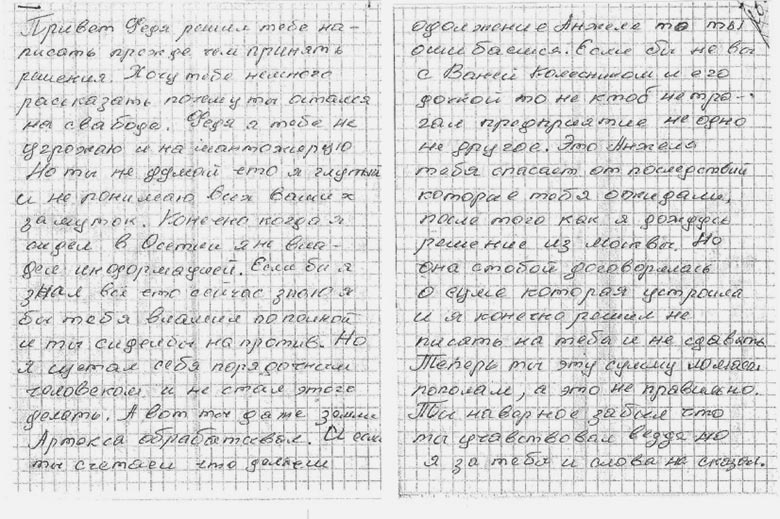 1
Привет Федя решил тебе на-
писать прежде чем принять
решения. Хочу тебе немного
рассказать почему ты остался
на свабоде. Федя я тебе не
угрожаю и на шантожирую
Но ты не думай что я глупый
и не понимаю всех ваших
замуток. Конечно когда я
сидел в Осетии я не вла-
дел информацией. Если бы я
знал все что сейчас знаю я
бы тебя вламил по полной
и ты сиделбы на против. Но
я щетал себя порядочним
человеком и не стал этого
делать. А вот ты даже земли
Артекса обрабатывал. И если
ты счетаеш что делаеш
одолжение Анжеле то ты
ошибаешся. Если бы не вы
с Ваней Колесником и его
дочкой то не ктоб не тро-
гал предприятие не одно
не другое. Это Анжела
тебя спасает от последствий
которые тебя ожидали,
после того как я дождусь
решение из Москвы. Но
она стобой договорилась
о суме которая устроила
и я конечно решил не
писать на тебя и не сдавать
Теперь ты эту сумму
пополам, а это не правильно.
Ты наверное забыл что
ты учавствовал везде но
я за тебя и слова не сказал.